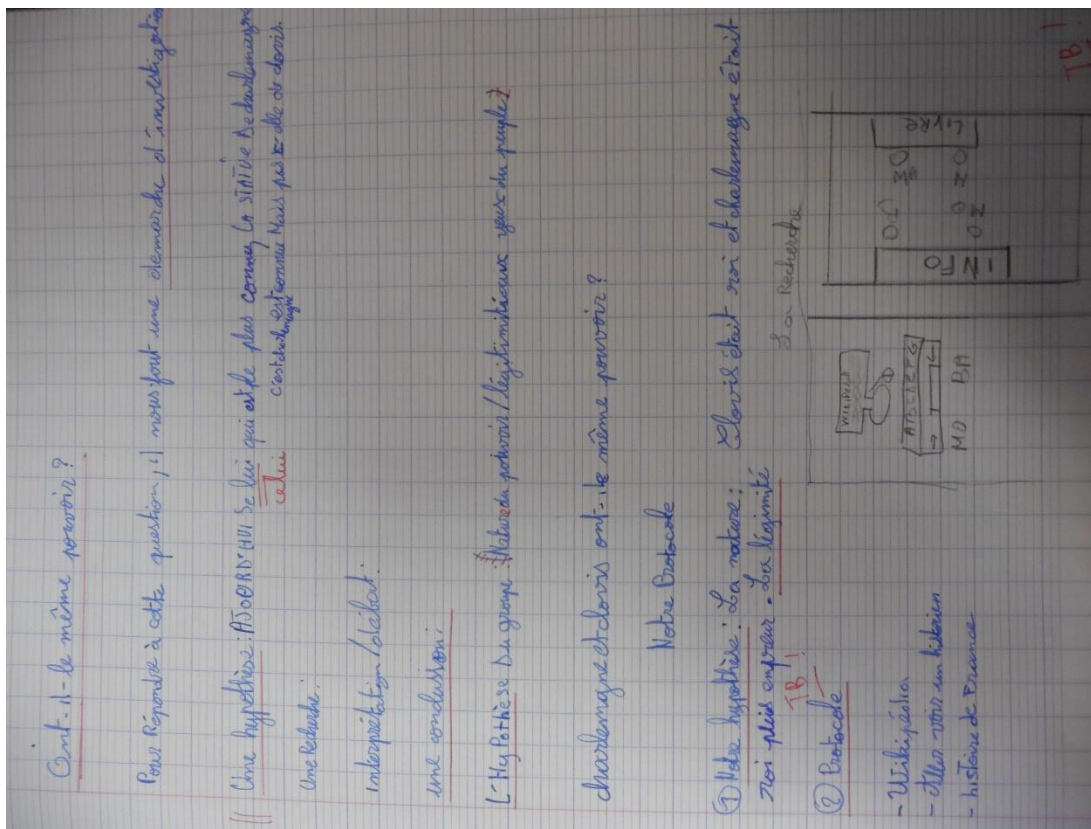 Ont-il-le même pouvoir?
Pour Répondre à cette question, il nous faut une demarche d'investigation
Une hypothèse: AJOORD'HUI Se lui qui est le plus connu LA STATUE De charlemagne
celui
c'est charlemagne est connue Mais pas celle de clovis.
Une Recherche:
Interprétation/débat:
une conclusion:
L'HyPothèse Du groupe: (Nature du pouvoir/légitimité aux yeux du peuple)
charlemagne et clovis ont-ils même pouvoir?
Notre Protocole
① Notre hypothèse: La nature: Clovis était roi et charlemagne était
roi puis empreur. La légimité
TB!
La Recherche
② Protocole
- Wikipédia
- Aller voir un historien
- histoire de France
WikiPedia
ABCDEFG
MO BA
INFO
LIVRE
TB!